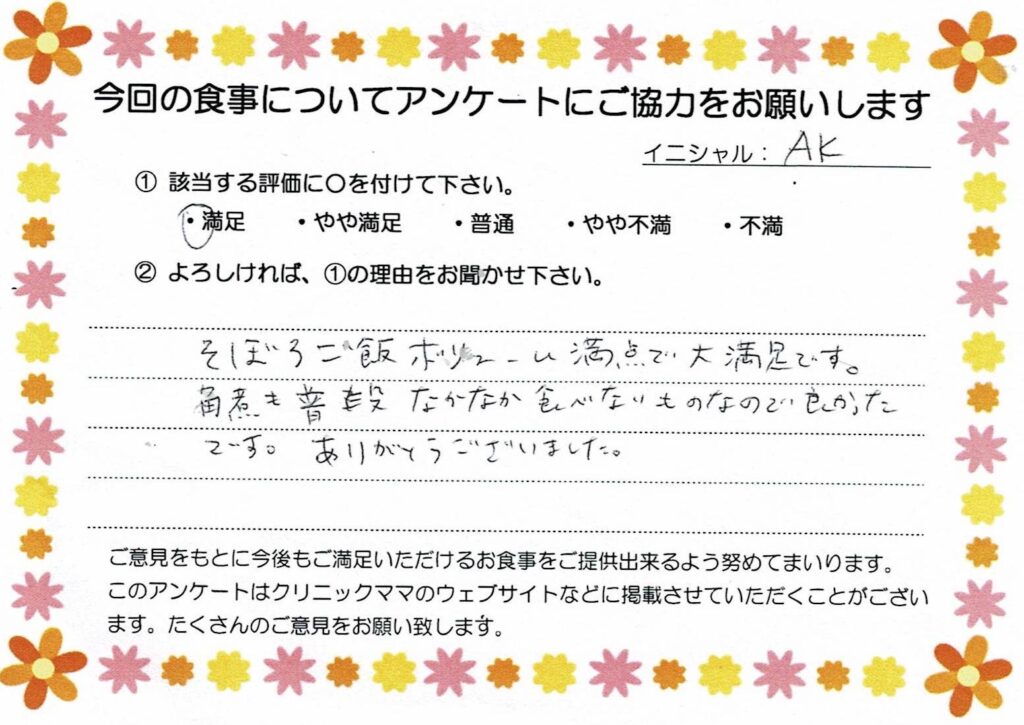 今回の食事についてアンケートにご協力をお願いします
イニシャル： AK
① 該当する評価に〇を付けて下さい。
・満足 ・やや満足 ・普通 ・やや不満 ・不満
② よろしければ、①の理由をお聞かせ下さい。
そぼろご飯ボリューム満点で大満足です。
角煮も普段なかなか食べないものなので良かった
です。ありがとうございました。
ご意見をもとに今後もご満足いただけるお食事をご提供出来るよう努めてまいります。
このアンケートはクリニックママのウェブサイトなどに掲載させていただくことがござい
ます。たくさんのご意見をお願い致します。